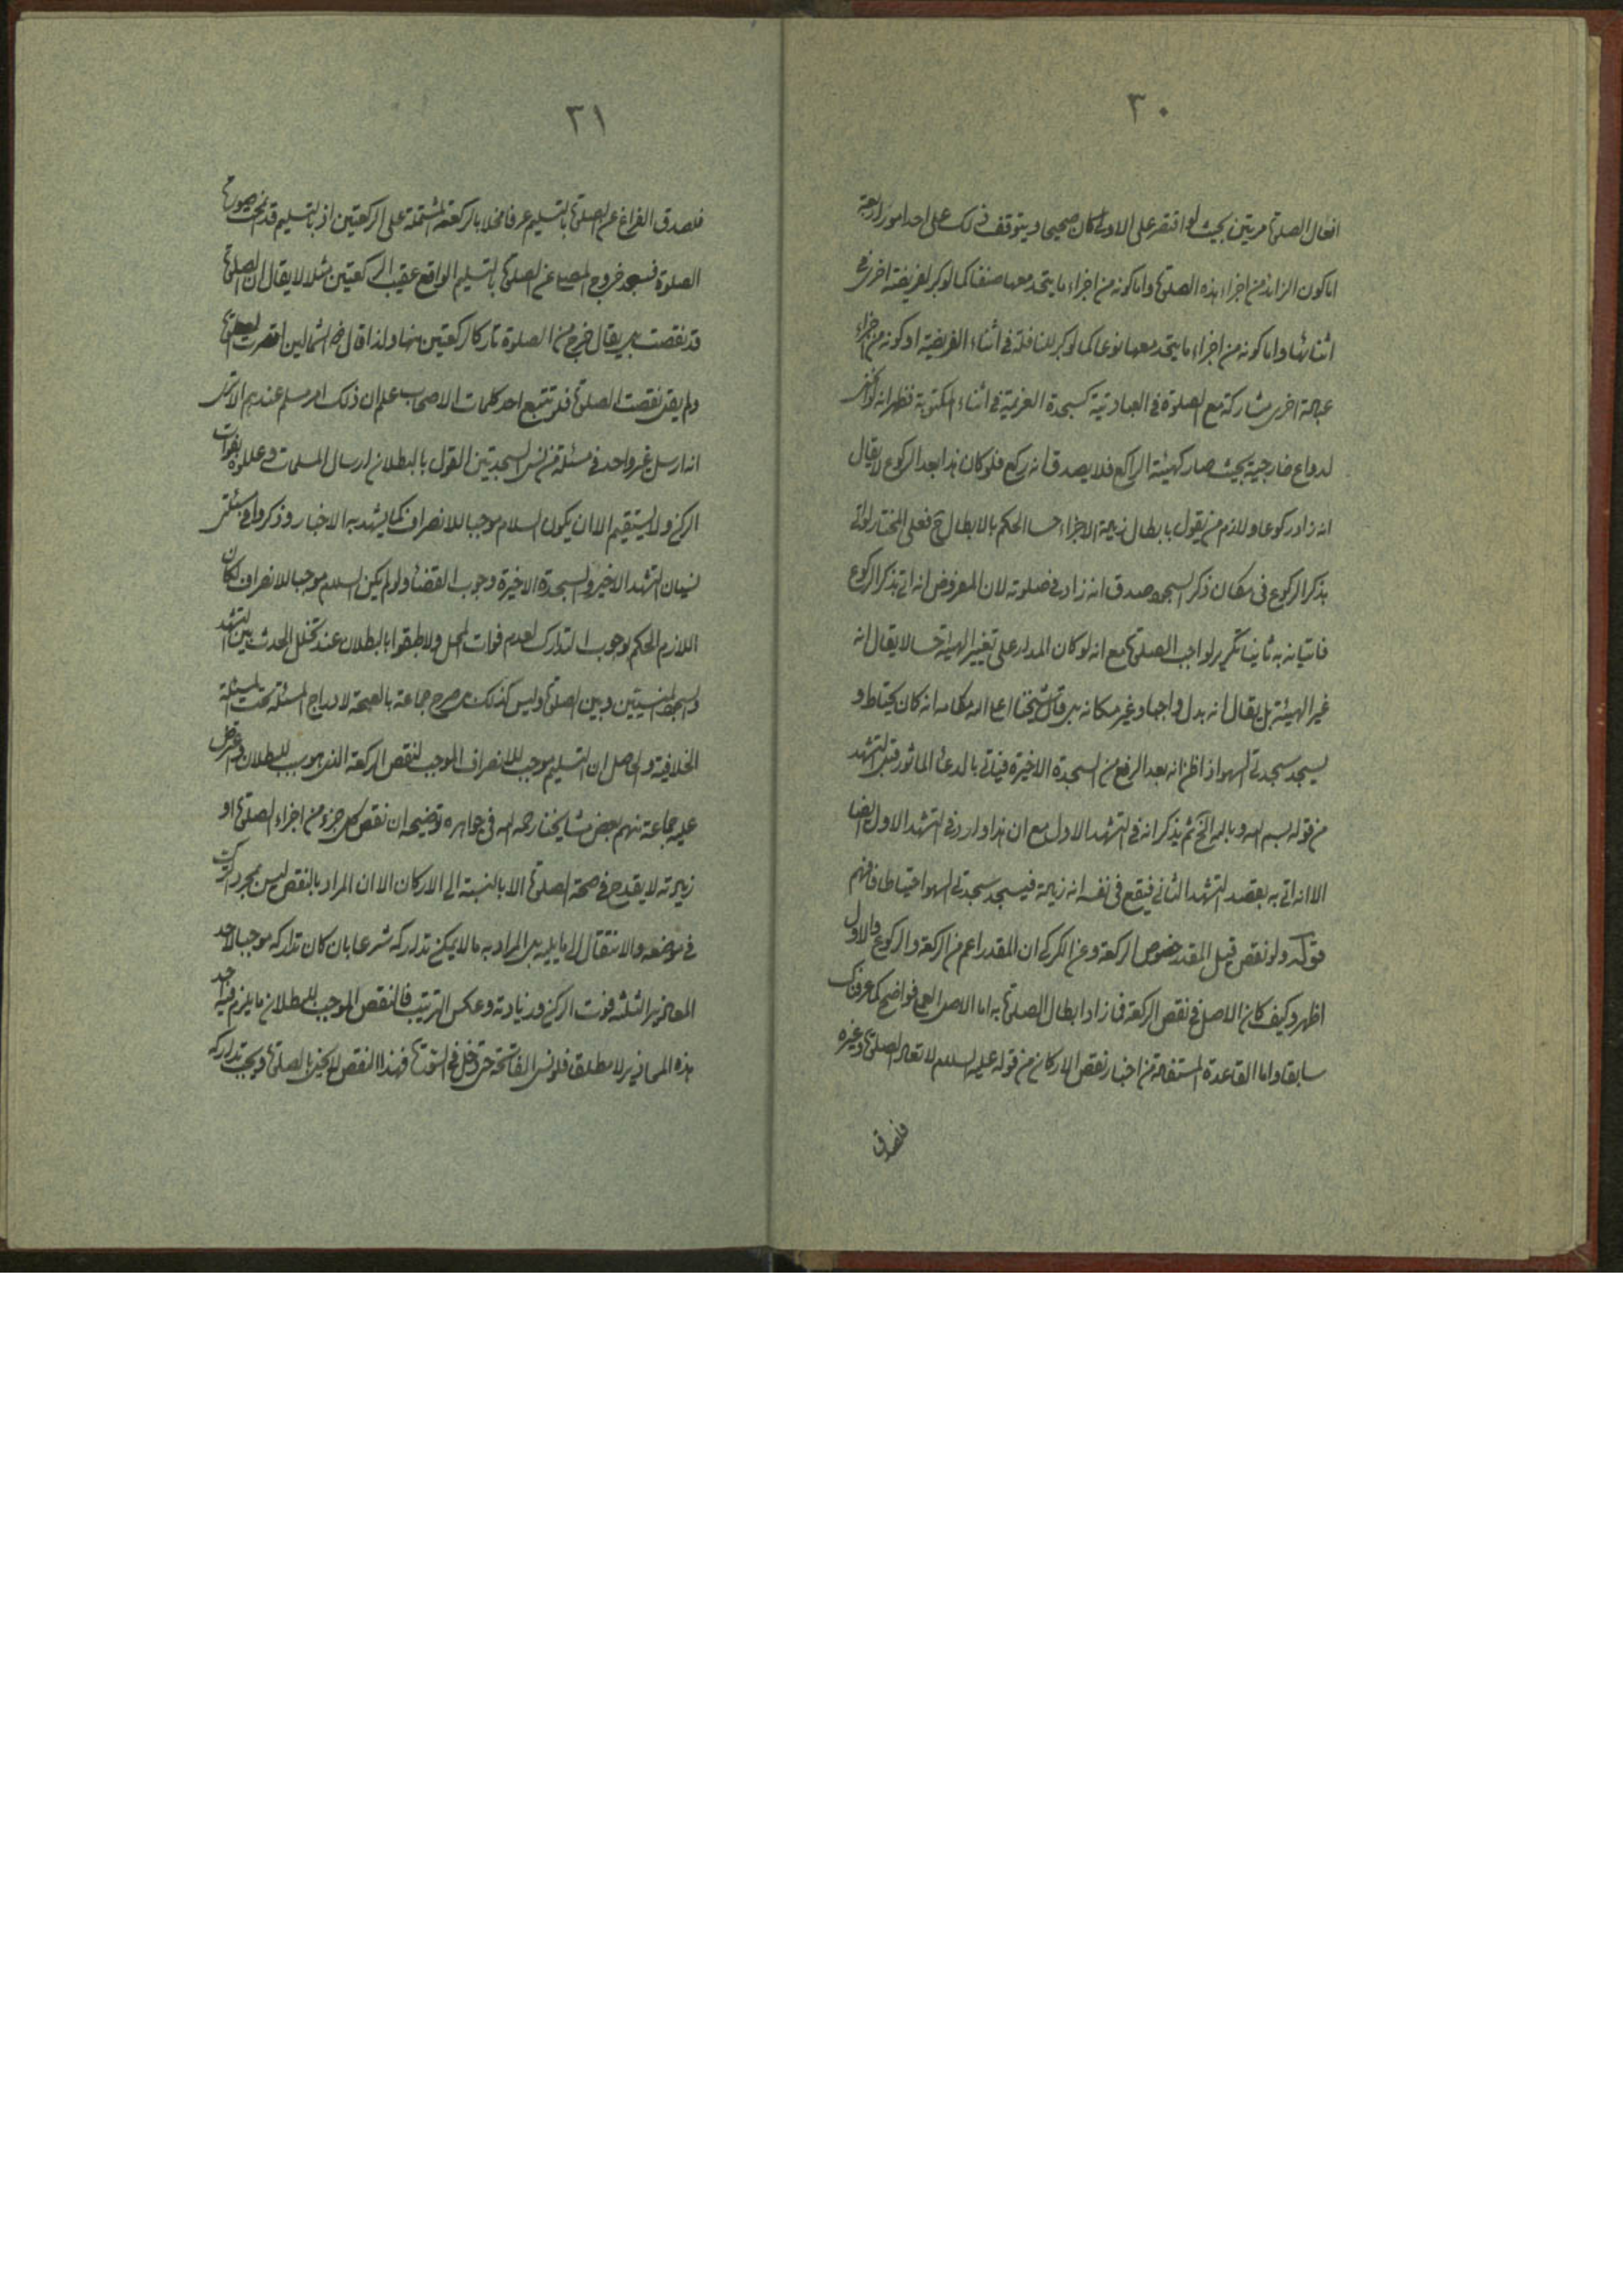 ٣٠
افعال الصلوة مرتين بحيث لو اقتصر على الاولى كان صحيحا ويتوقف ذلك على احد امور اربعة
اما كون الزائد من اجزاء هذه الصلوة واما كونه من اجزاء ما يتحد معها صنفا كما لو كبر لفريضة اخرى في
اثنائها واما كونه من اجزاء ما يتحد معها نوعا كما لو كبر للنافلة في اثناء الفريضة او كونه من اجزاء
عبادة اخرى مشاركة مع الصلوة في العبادتية كسجدة العزيمة في اثناء المكتوبة فظهر انه لو انحنى
لدواع خارجية بحيث صار كهيئة الراكع فلا يصدق انه ركع فلو كان هذا بعد الركوع لا يقال
انه زاد ركوعا ولازم من يقول بابطال زيادة الاجزاء حسا الحكم بالابطال ح فعلى المختار لو اتى
بذكر الركوع في مكان ذكر السجود صدق انه زاد في صلوته لان المفروض انه اتى بذكر الركوع
فاتيانه به ثانيا تكرير لواجب الصلوة مع انه لو كان المدار على تغيير الهيئة حسا لا يقال انه
غير الهيئة بل يقال انه بدل واجبا وغير مكانه بل قال شيخنا اعلى الله مقامه انه كان يحتاط و
يسجد سجدتي السهو اذا ظن انه بعد الرفع من السجدة الاخيرة فياتى بالدعاء الماثور قبل التشهد
من قوله بسم الله وبالله الخ ثم يذكر انه في التشهد الاول مع ان هذا وارد في التشهد الاول ايضا
الا انه اتى به بقصد التشهد الثاني فيقع في نفسه انه زيادة فيسجد سجدتي السهو احتياطا فافهم
قوله ولو نقص قيل المقدر خصوص الركعة وعن الكركي ان المقدر اعم من الركعة والركوع والاول
اظهر وكيف كان الاصل في نقص الركعة فما زاد ابطال الصلوة به اما الاصل فواضح كما عرفناك
سابقا واما القاعدة المستفادة من اخبار نقص الاركان من قوله عليه السلام لا تعاد الصلوة وغيره
فلصدق
٣١
فلصدق الفراغ عن الصلوة بالتسليم عرفا مخلا بالركعة المشتملة على الركعتين اذ بالتسليم قد تمت صورة
الصلوة فبمجرد خروج المصلى عن الصلوة بالتسليم الواقع عقيب الركعتين مثلا لا يقال ان الصلوة
قد نقصت بل يقال خرج من الصلوة تاركا ركعتين منها ولذا قال ذو الشمالين اقصرت الصلوة
ولم يقل نقصت الصلوة فلو تتبع احد كلمات الاصحاب علم ان ذلك امر مسلم عندهم الا ترى
انه ارسل غير واحد في مسئلة من نسى السجدتين القول بالبطلان ارسال المسلمات وعللوه بفوات
الركن ولا يستقيم الا ان يكون السلام موجبا للانصراف كما يشهد به الاخبار وذكروا في مسئلتى
نسيان التشهد الاخير والسجدة الاخيرة وجوب القضاء ولو لم يكن السلام موجبا للانصراف لكان
اللازم الحكم بوجوب التدارك لعدم فوات المحل ولاطبقوا بالبطلان عند تخلل الحدث بين التشهد
والسجدة المنسيتين وبين الصلوة وليس كذلك بل صرح جماعة بالصحة لادراج المسئلة تحت المسئلة
الخلافية والحاصل ان التسليم موجب للانصراف الموجب لنقص الركعة الذي هو سبب للبطلان واعترض
عليه جماعة منهم بعض مشايخنا رحمه الله في جواهره توضيحه ان نقص كل جزء من اجزاء الصلوة او
زيادته لا يقدح في صحة الصلوة الا بالنسبة الى الاركان الا ان المراد بالنقص ليس مجرد الترك
في موضعه والانتقال الى ما يليه بل المراد به ما لا يمكن تداركه شرعا بان كان تداركه موجبا لاحد
المحاذير الثلثة فوت الركن وزيادته وعكس الترتيب فالنقص الموجب للبطلان ما يلزم فيه احد
هذه المحاذير لا مطلقا فلو نسى الفاتحة حتى دخل في السورة فهذا النقص لا يخل بالصلوة ويجب تداركه